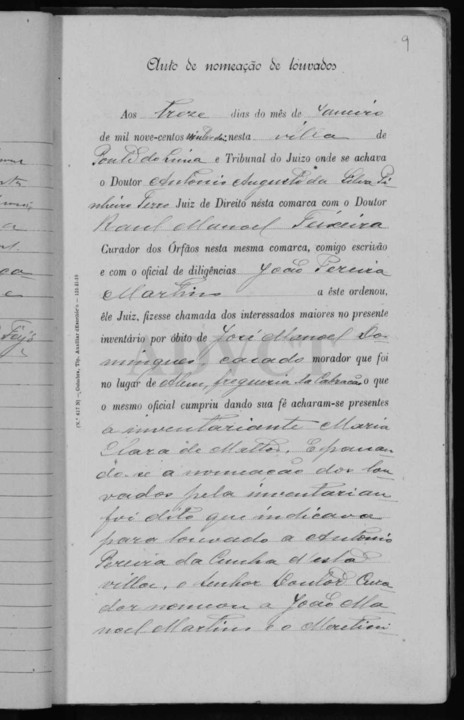 9
Auto de nomeação de louvados
Aos treze dias do mês de Janeiro
de mil nove-centos nesta villa de
Ponte do Lima e Tribunal do Juizo onde se achava
o Doutor Antonio Augusto da Silva Pi
nheiro Ferro Juiz de Direito nesta comarca com o Doutor
Raul Manoel Teixeira
Curador dos Órfãos nesta mesma comarca, comigo escrivão
e com o oficial de diligências João Pereira
Martins a êste ordenou,
êle Juiz, fizesse chamada dos interessados maiores no presente
inventário por óbito de José Manoel Do
mingues, casado morador que foi
no lugar de freguezia da Cabração o que
o mesmo oficial cumpriu dando sua fé acharam-se presentes
a inventariante Maria
Clara de Mattos.
do-se á nomeação dos lou
vados pela inventarian
foi dito que indicava
para louvado a Antonio
Pereira da Cunha d'esta
villa, o Senhor Doutor Cura
dor nomeou a João Ma
noel Martins e o